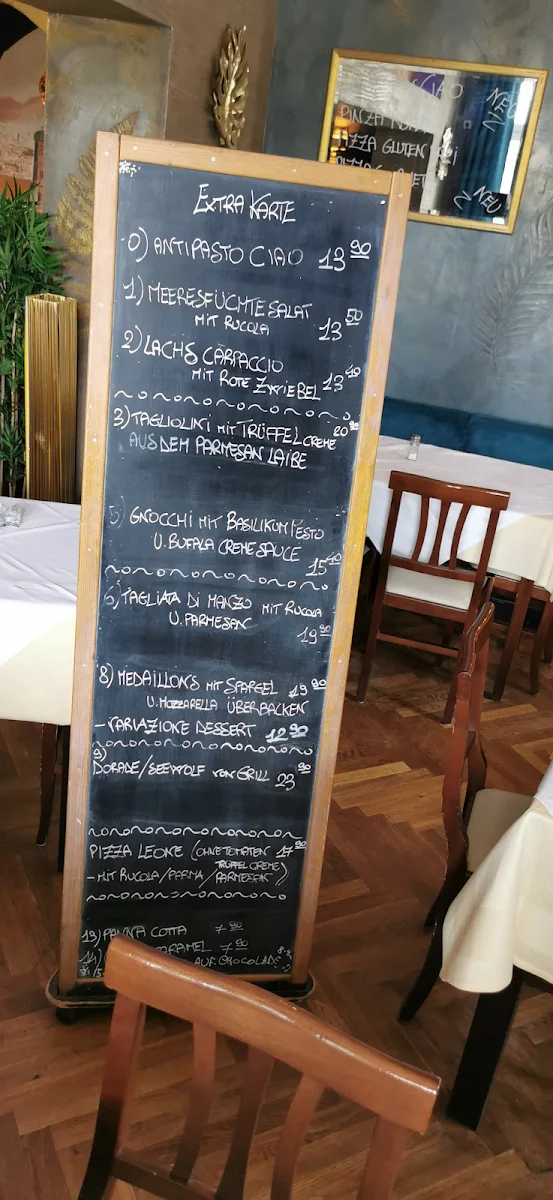 EXTRA KARTE
0) ANTIPASTO CIAO 13 90
1) MEERESFÜCHTE SALAT
MIT RUCOLA 13 50
2) LACHS CARPACCIO
MIT ROTE ZWIEBEL 13 40
3) TAGLIOLINI MIT TRÜFFELCREME 20 90
AUS DEM PARMESAN LAIBE
5) GNOCCHI MIT BASILIKUM PESTO
U. BUFALA CREME SAUCE
15 40
6) TAGLIATA DI MANZO MIT RUCOLA
U. PARMESAN 19 90
8) MEDAILLONS MIT SPARGEL 19 90
U. MOZZARELLA ÜBERBACKEN
- VARIAZIONE DESSERT 12 90
9)
DORADE/SEEWOLF VON GRILL 23 90
PIZZA LEONE (OHNE TOMATEN 17 90
TRÜFFEL CREME
- MIT RUCOLA/PARMA/PARMESAN)
13) PANNA COTTA 7 90
14) 7 90
AUF
CIAO
PINZA
PIZZA GLUTEN
NEU
NEU